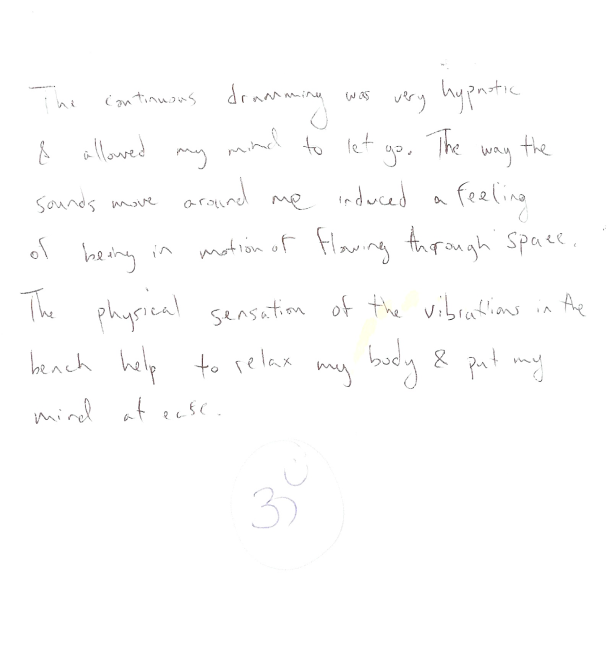 The continuous drumming was very hypnotic
& allowed my mind to let go. The way the
sounds move around me induced a feeling
of being in motion of flowing thorough space.
The physical sensation of the vibrations in the
bench help to relax my body & put my
mind at ease.